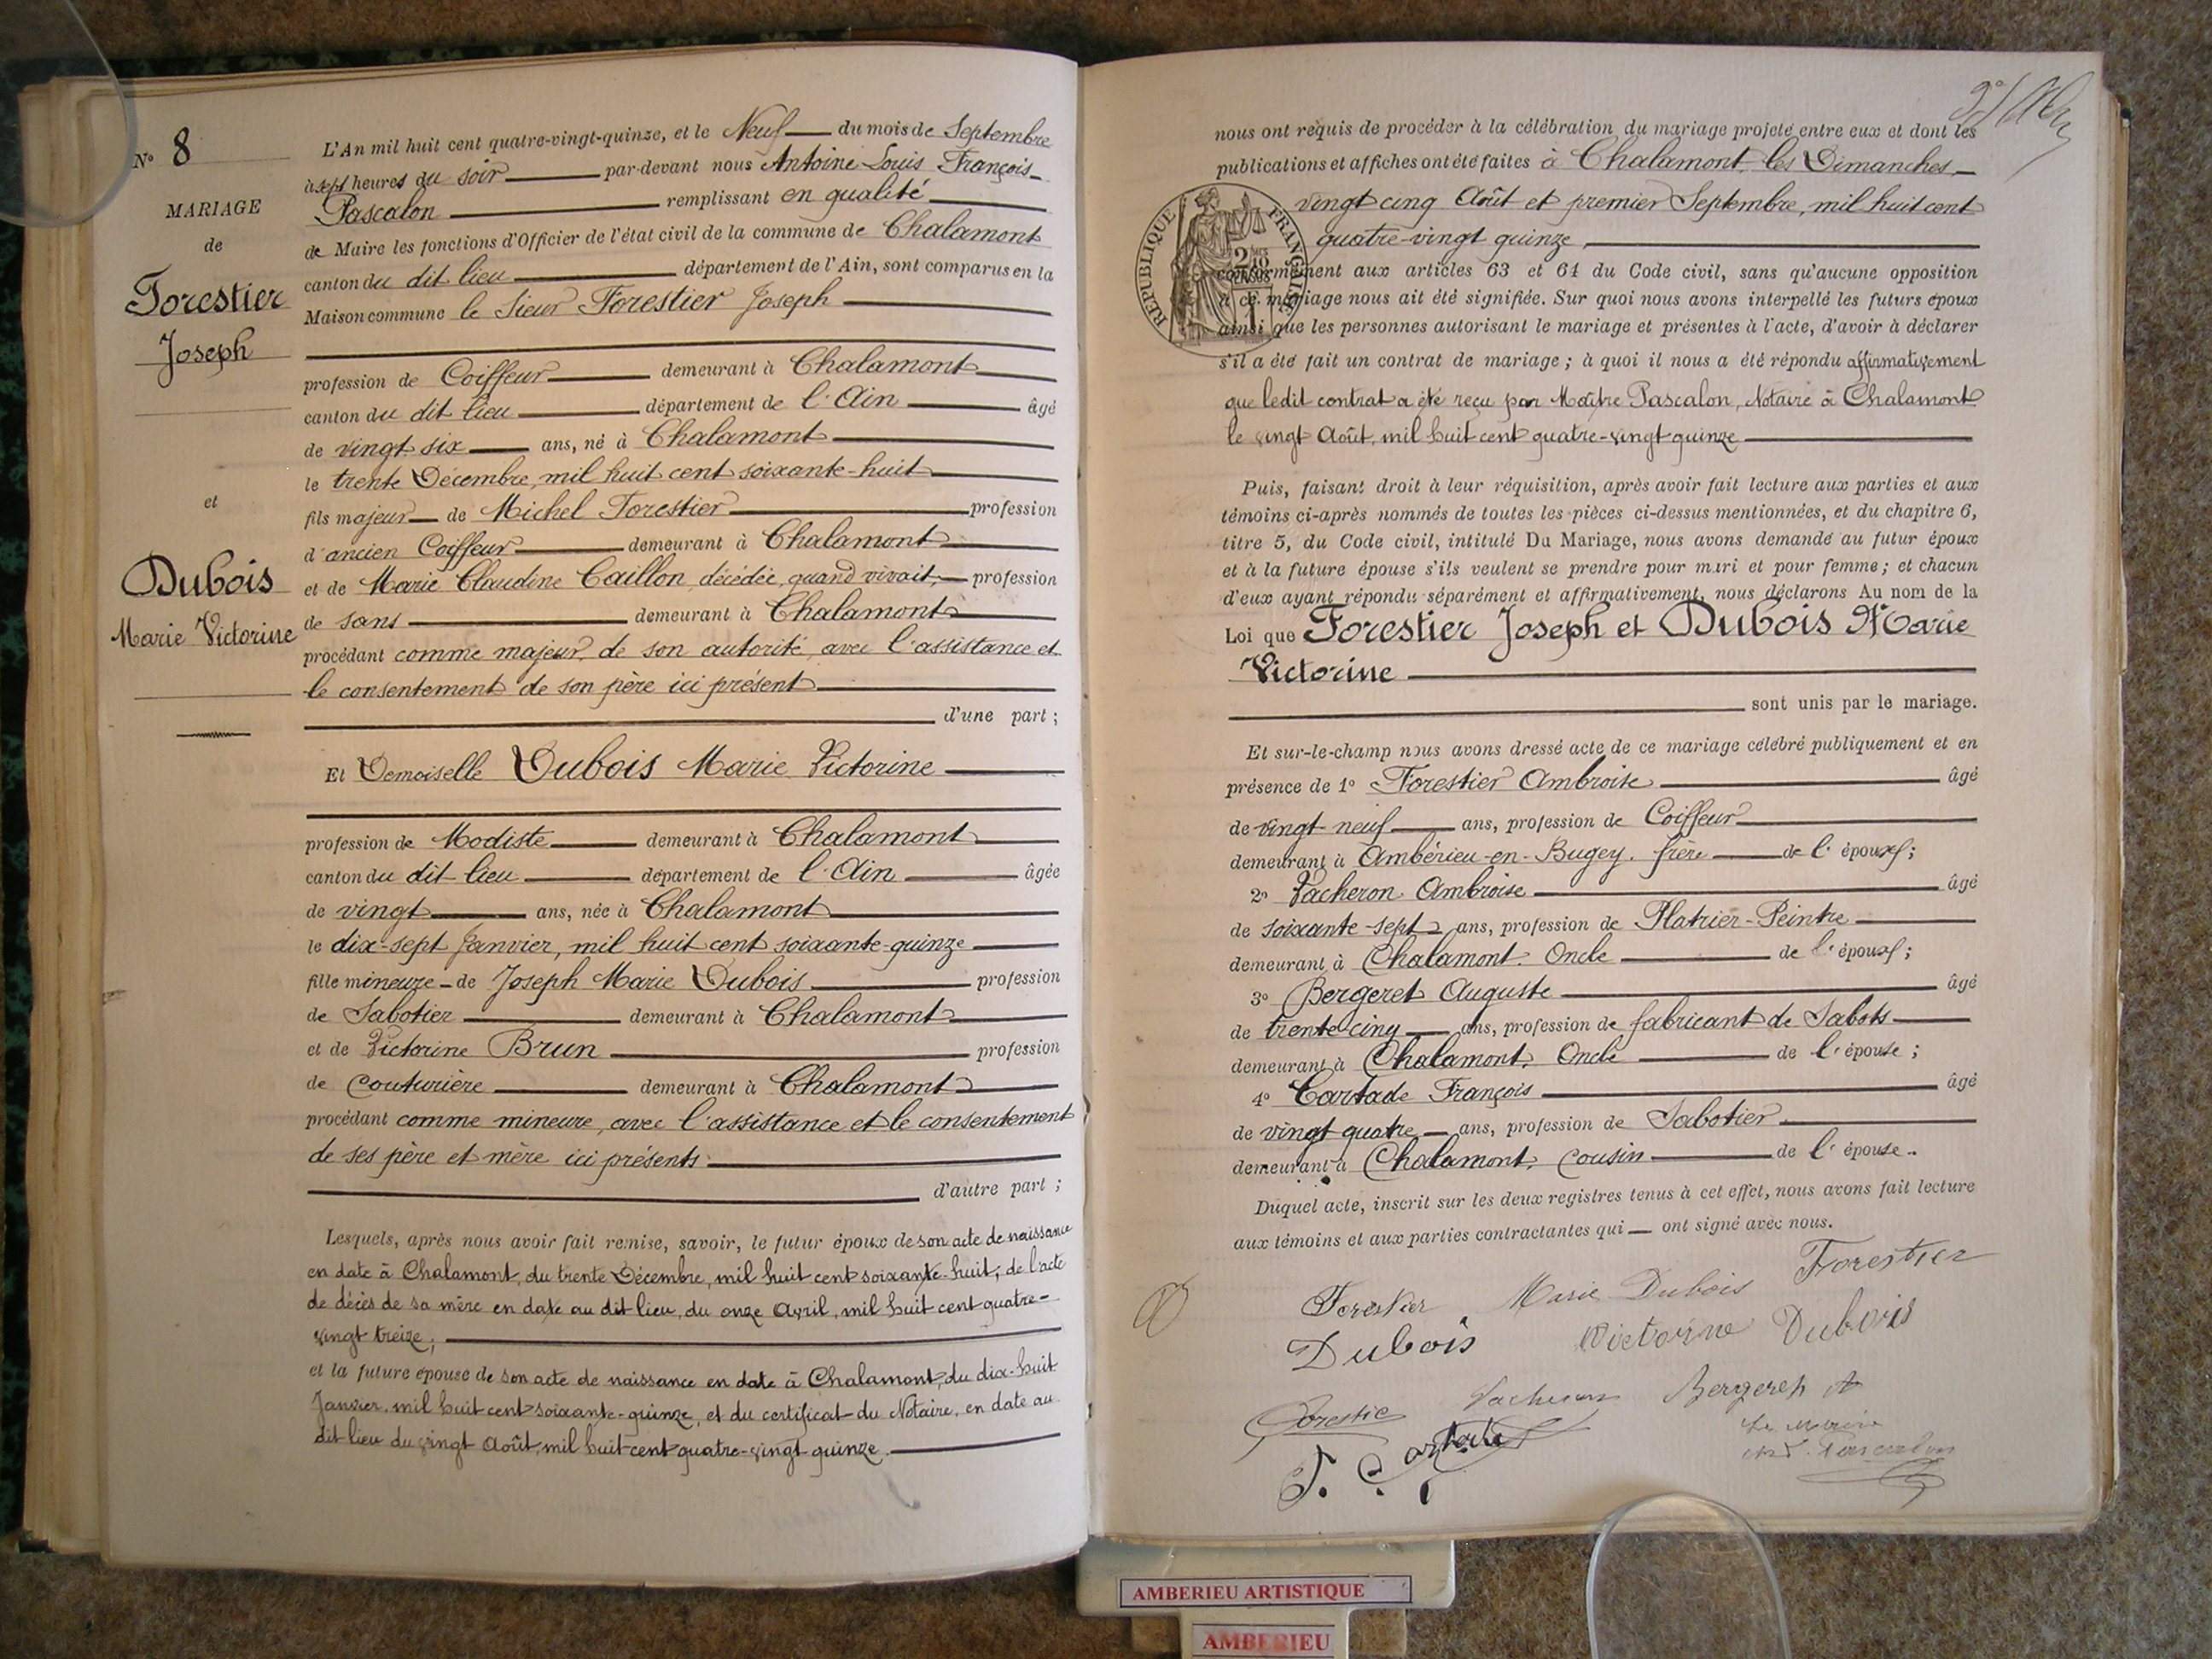 N° 8
MARIAGE
de
Forestier
Joseph
et
Dubois
Marie Victorine
L'An mil huit cent quatre-vingt-quinze, et le Neuf du mois de Septembre
à sept heures du soir par-devant nous Antoine Louis François
Pascalon remplissant en qualité
de Maire les fonctions d'Officier de l'état civil de la commune de Chalamont
canton du dit lieu département de l'Ain, sont comparus en la
Maison commune le Sieur Forestier Joseph
profession de Coiffeur demeurant à Chalamont
canton du dit lieu département de l'Ain âgé
de vingt six ans, né à Chalamont
le trente Décembre, mil huit cent soixante-huit
fils majeur de Michel Forestier profession
d'ancien Coiffeur demeurant à Chalamont
et de Marie Claudine Caillon, décédée, quand vivait, profession
de sans demeurant à Chalamont
procédant comme majeur, de son autorité, avec l'assistance et
le consentement de son père ici présent
d'une part ;
Et Demoiselle Dubois Marie Victorine
profession de Modiste demeurant à Chalamont
canton du dit lieu département de l'Ain âgée
de vingt ans, née à Chalamont
le dix-sept Janvier, mil huit cent soixante-quinze
fille mineure - de Joseph Marie Dubois profession
de Sabotier demeurant à Chalamont
et de Victorine Brun profession
de Couturière demeurant à Chalamont
procédant comme mineure, avec l'assistance et le consentement
de ses père et mère ici présents
d'autre part ;
Lesquels, après nous avoir fait remise, savoir, le futur époux de son acte de naissance
en date à Chalamont, du trente Décembre, mil huit cent soixante-huit ; de l'acte
de décès de sa mère en date au dit lieu, du onze Avril, mil huit cent quatre-
vingt treize ;
et la future épouse de son acte de naissance en date à Chalamont, du dix-huit
Janvier, mil huit cent soixante-quinze, et du certificat du Notaire, en date au
dit lieu du vingt Août, mil huit cent quatre-vingt quinze.
nous ont requis de procéder à la célébration du mariage projeté entre eux et dont les
publications et affiches ont été faites à Chalamont, les Dimanches
vingt cinq Août et premier Septembre, mil huit cent
quatre-vingt quinze,
conformément aux articles 63 et 64 du Code civil, sans qu'aucune opposition
à ce mariage nous ait été signifiée. Sur quoi nous avons interpellé les futurs époux
ainsi que les personnes autorisant le mariage et présentes à l'acte, d'avoir à déclarer
s'il a été fait un contrat de mariage ; à quoi il nous a été répondu affirmativement
que ledit contrat a été reçu par Maître Pascalon, Notaire à Chalamont
le vingt Août, mil huit cent quatre-vingt quinze
RÉPUBLIQUE FRANÇAISE
Puis, faisant droit à leur réquisition, après avoir fait lecture aux parties et aux
témoins ci-après nommés de toutes les pièces ci-dessus mentionnées, et du chapitre 6,
titre 5, du Code civil, intitulé Du Mariage, nous avons demandé au futur époux
et à la future épouse s'ils veulent se prendre pour mari et pour femme ; et chacun
d'eux ayant répondu séparément et affirmativement, nous déclarons Au nom de la
Loi que Forestier Joseph et Dubois Marie
Victorine
sont unis par le mariage.
Et sur-le-champ nous avons dressé acte de ce mariage célébré publiquement et en
présence de 1° Forestier Ambroise âgé
de vingt-neuf ans, profession de Coiffeur
demeurant à Ambérieu-en-Bugey. frère de l'époux ;
2° Vacheron Ambroise âgé
de soixante-sept ans, profession de Platrier-Peintre
demeurant à Chalamont. Oncle de l'époux ;
3° Bergeret Auguste âgé
de trente cinq ans, profession de fabricant de Sabots
demeurant à Chalamont. Oncle de l'épouse ;
4° Cartade François âgé
de vingt quatre ans, profession de Sabotier
demeurant à Chalamont, cousin de l'épouse.
Duquel acte, inscrit sur les deux registres tenus à cet effet, nous avons fait lecture
aux témoins et aux parties contractantes qui ont signé avec nous.
Forestier Marie Dubois Forestier
Dubois Victorine Dubois
Forestie Vacheron Bergeret A
F. Cartade
Le Maire
Pascalon
AMBERIEU ARTISTIQUE
AMBERIEU